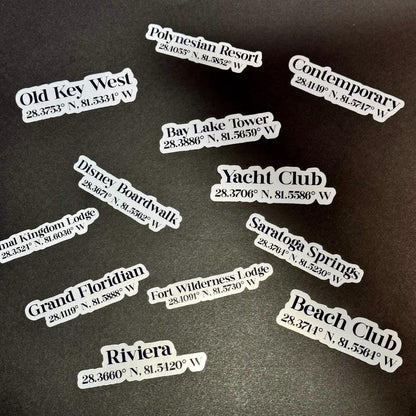 Polynesian Resort
28.4055° N, 81.5852° W
Contemporary
28.4149° N, 81.5717° W
Old Key West
28.3753° N, 81.5334° W
Bay Lake Tower
28.3886° N, 81.5659° W
Disney Boardwalk
28.3671° N, 81.5562° W
Yacht Club
28.3706° N, 81.5586° W
mal Kingdom Lodge
28.3521° N, 81.6036° W
Saratoga Springs
28.3764° N, 81.5230° W
Grand Floridian
28.4119° N, 81.5888° W
Fort Wilderness Lodge
28.4091° N, 81.5730° W
Beach Club
28.3714° N, 81.5564° W
Riviera
28.3660° N, 81.5420° W